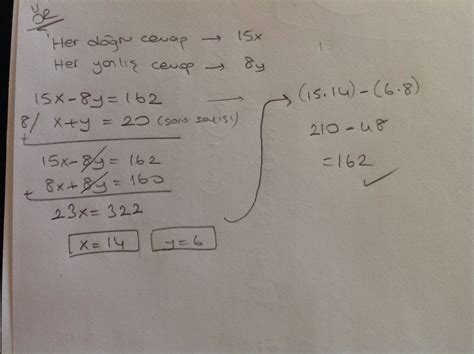 ÖR
Her doğru cevap → 15x
Her yanlış cevap → 8y
15x-8y=162 →
8/ x+y=20 (soru sayısı)
15x-8y=162
+ 8x+8y=160
23x=322
x=14 y=6
(15.14)-(6.8)
210-48
=162 ✓